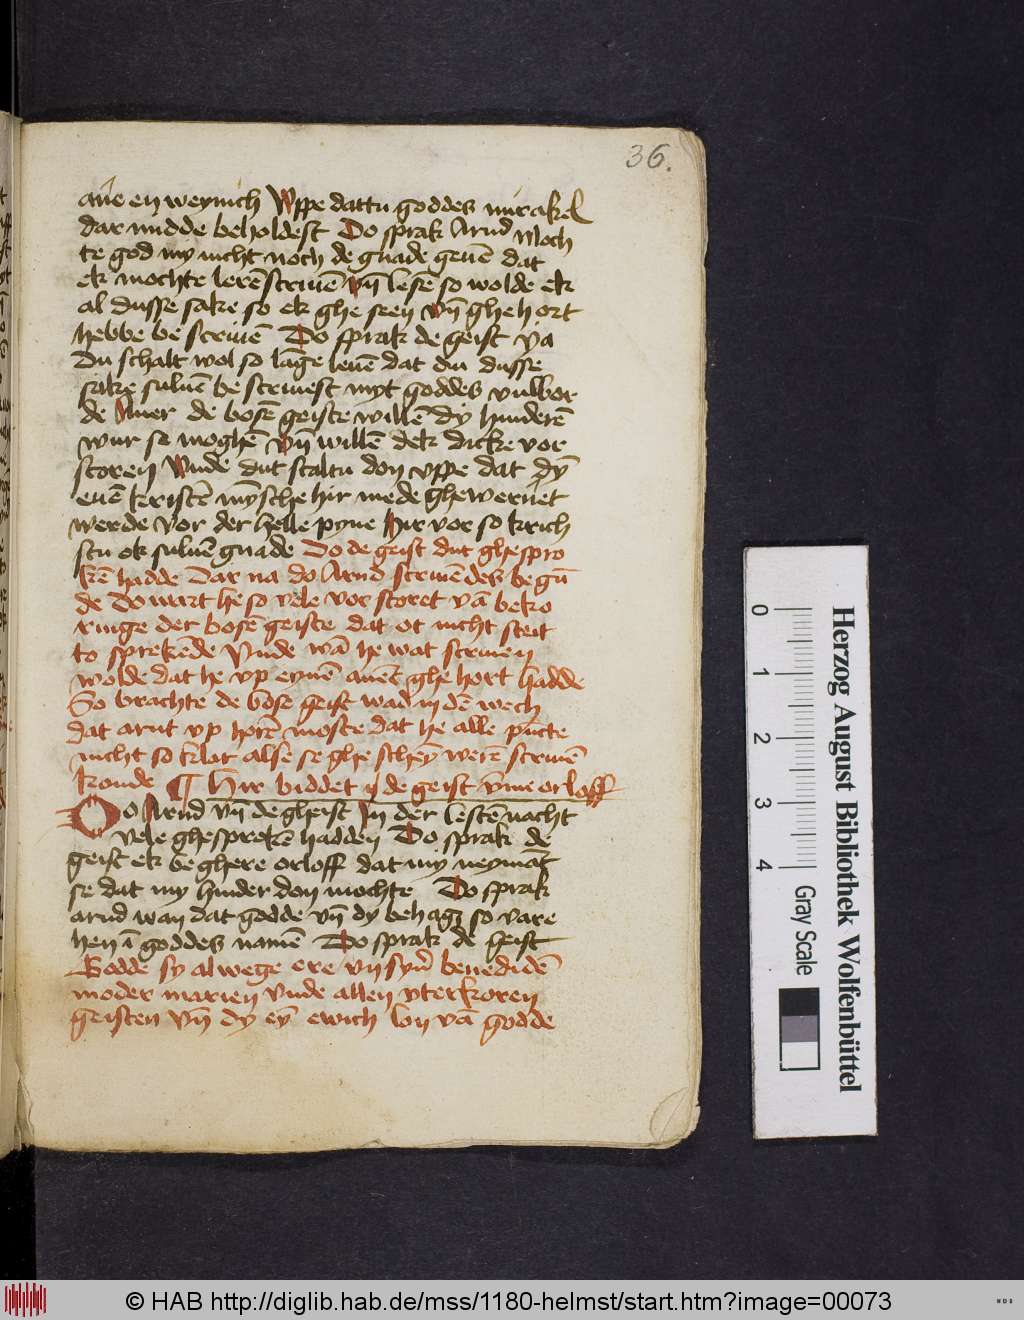 36.
aūe en weynich Vppe dattu goddes mirakel
dar midde beholdest Do sprak Arnd Moch
te god my nicht noch de gnade geuē dat
ek mochte lerē scriuē vn̄ lesē so wolde ek
al dusse sake so ek ghe seen vn̄ ghehort
hebbe be scriuē Do sprak de geist ya
Du schalt wol so lāge leuē dat du dusse
sake suluē be scriuest myt goddes vulbor
de Auer de bosē geiste willē dy hinderē
wur se moghē vn̄ willē dek dicke vor
storen Vnde dut scaltu don vppe dat dȳ
euē kristē mȳsche hir mede ghewernet
werde vor der helle pyne Hir vor so krich
stu ok suluē gnade Do de geist dut ghespro
kē hadde Dar na do Arnd scriuēdes begū
de Do wart he so vele vor storet vā beko
ringe der bosē geiste dat ot nicht steit
to sprekēde Vnde wā he wat scriuen
wolde dat he vp eynē auēt ghe hort hadde
So brachte de bose geist wad in dē wech
dat arnt vp horē moste dat he alle pūcte
nicht so klar alse se ghe scheȳ werē scriuē
konde ¶ Hir biddet de geist vm̄e orloff
Do Arnd vn̄ de gheist In der lestē nacht
vele ghesprokē hadden Do sprak de
geist ek beghere orloff dat my neymāt
se dat my hinder don mochte Do sprak
arnd wan dat godde vn̄ dy behagꝫ so vare
hen ī goddes namē Do sprak de geist
Godde sy alwege ere vn̄ syn̄ benedidē
moder marien vnde allen vterkoren
geisten vn̄ dy eȳ ewich lon vā godde
Herzog August Bibliothek Wolfenbüttel
0 1 2 3 4
Gray Scale
© HAB http://diglib.hab.de/mss/1180-helmst/start.htm?image=00073